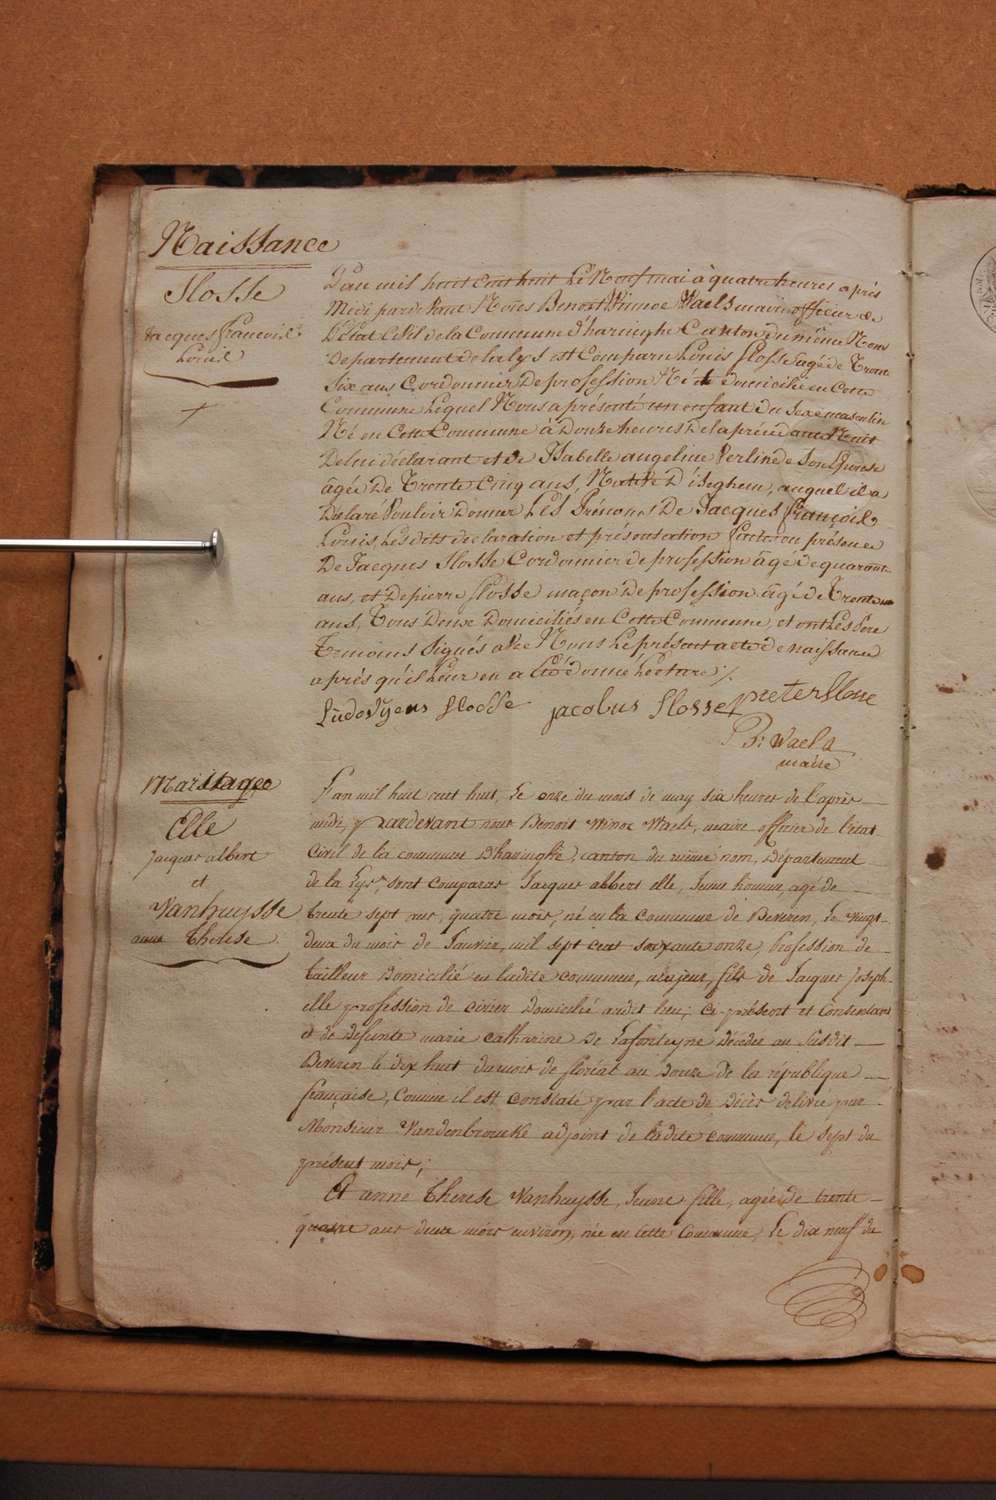 Naissance
Slosse
Jacques françois
Louis
L'an mil huit cent huit Le Neuf mai à quatre heures après
Midi pardevant Nous Benoit Winoc Waels maire officier de
L'état Civil de la Commune d'haringhe Canton du même Nom
Departement de la lys est Comparu Louis Slosse agé de Trente
Six ans Cordonnier De profession Né et domicilié en Cette
Commune Lequel Nous a présenté un enfant du Sexe masculin
Né en Cette Commune à Douze heures De la précédante Nuit
De lui déclarant et de Isabelle angeline Verlinde Son Epouse
âgée De Trente Cinq ans, Native D'iseghem, auquel il a
Déclaré Vouloir Donner Les Prénoms De Jacques François
Louis Les dits déclaration et présentation faites en présence
De Jacques Slosse Cordonnier de profession âgé de quarante
ans, et De pierre Slosse maçon De profession âgé de Trente
ans, Tous Deux Domiciliés en Cette Commune, et ont Les Père
Temoins Signés avec Nous Le présent acte de naissance
après qu'il Leur en a été donné Lecture ./.
Ludovycus Slosse jacobus Slosse pieter slosse
B: Waels
maire
Mariage
Elle
Jacques albert
et
Vanhuysse
anne Therese
L'an mil huit cent huit, Le onze du mois de may six heures de l'après
midi, pardevant nous Benoit Winoc Waels, maire officier de l'état
Civil de la commune D'haringhe, canton du même nom, Département
de la Lys, sont comparus Jacques albert elle, Jeune homme, agé de
trente sept ans, quatre mois, né en la commune de Beveren, Le vingt
deux du mois de Janvier, mil sept cent soixante onze, Profession de
tailleur Domicilié en ladite commune, majeur, fils de Jacques Joseph
elle profession de Domicilié audit lieu; ce présent et Consentant
et de Défunte marie catharine De Lafonteyne Décédée au susdit
Beveren le dix huit du mois de floréal an Douze de la république
française, Comme il est constaté par l'acte de Décès délivré par
Monsieur Vandenbroucke adjoint de ladite commune, le sept du
présent mois;
Et anne Therese Vanhuysse, Jeune fille, agée de trente
quatre ans deux mois environ, née en cette Commune, Le dix neuf du